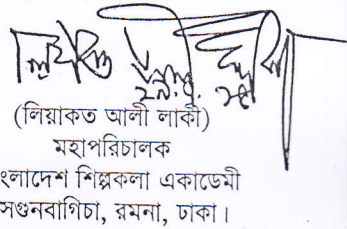 ২৯.৫.২৫
(লিয়াকত আলী লাকী)
মহাপরিচালক
ংলাদেশ শিল্পকলা একাডেমী
সগুনবাগিচা, রমনা, ঢাকা।